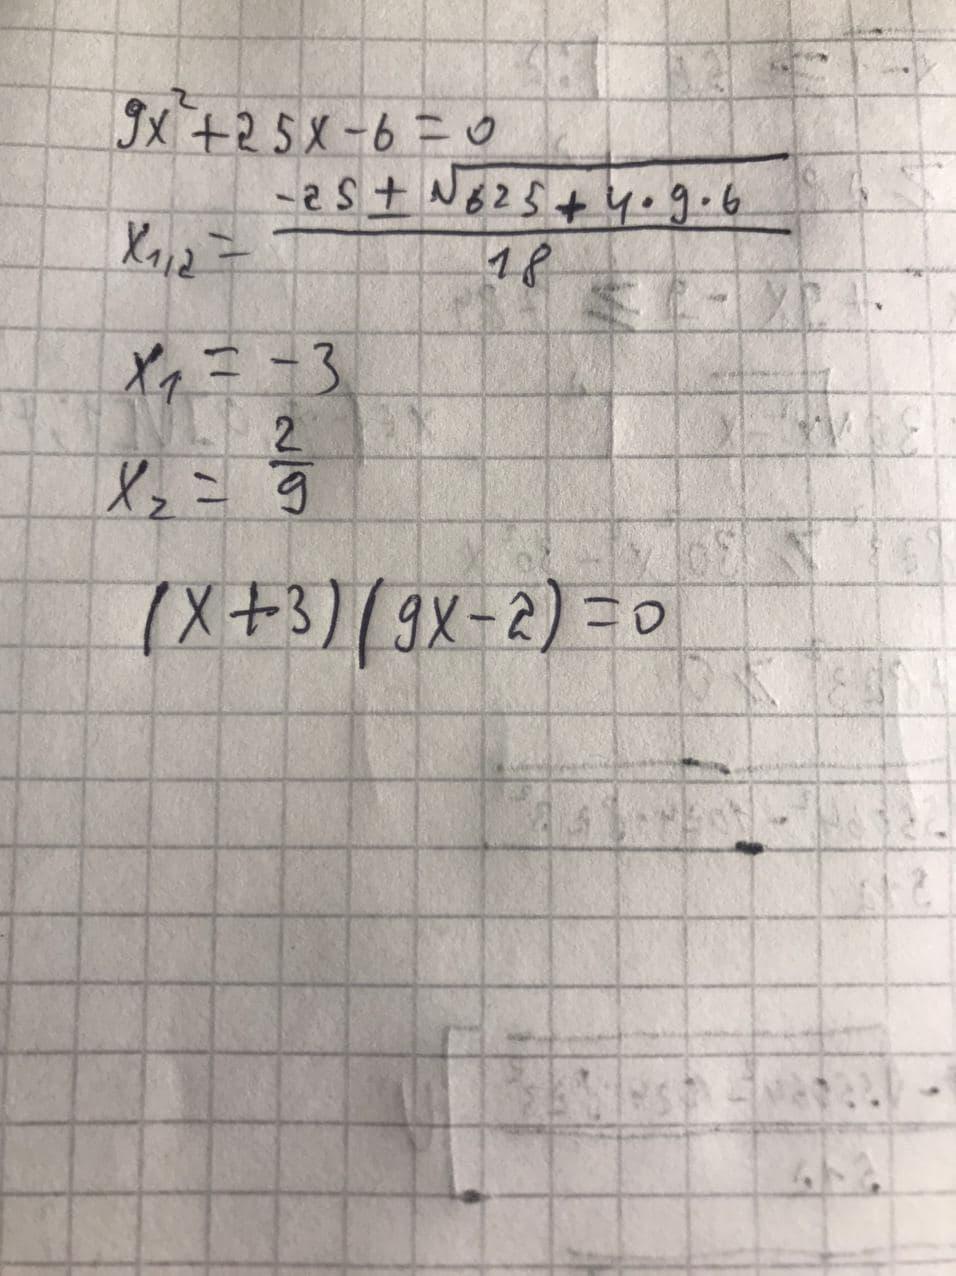 9x²+25x-6=0
x₁,₂ = (-25±√(625+4·9·6))/18
x₁ = -3
x₂ = 2/9
(x+3)(9x-2)=0